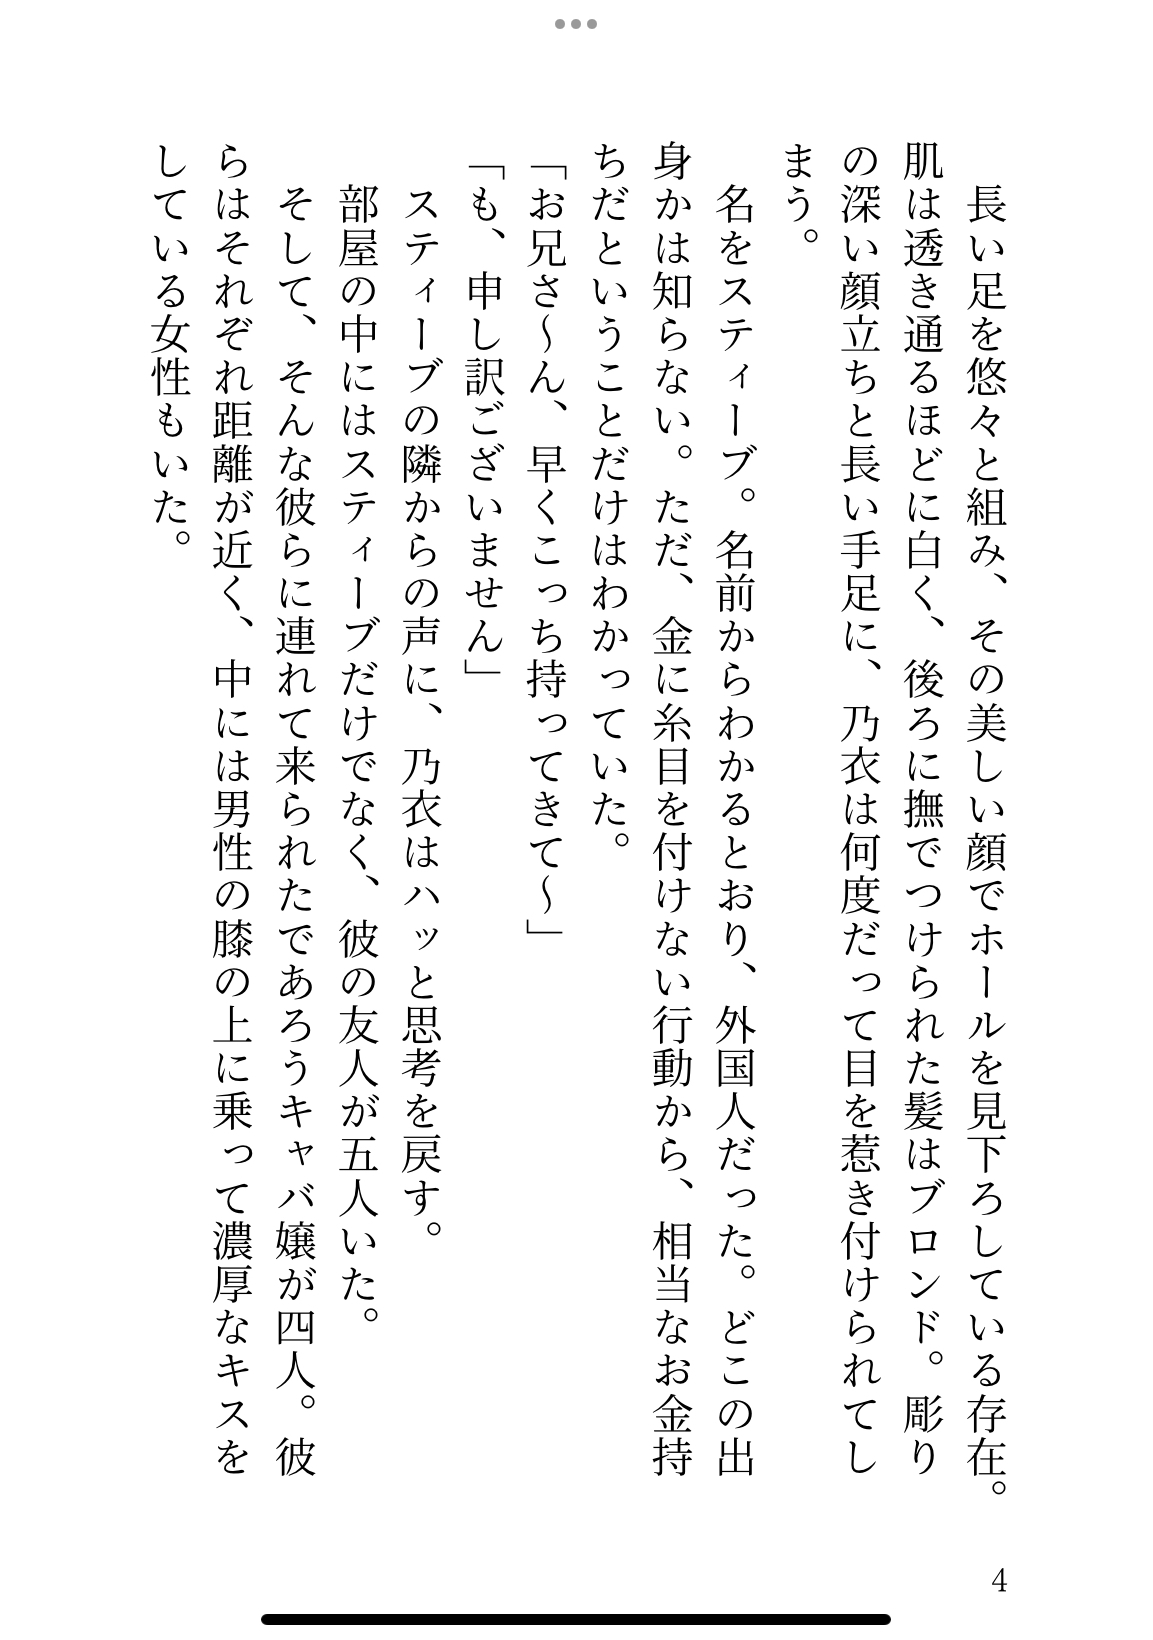 長い足を悠々と組み、その美しい顔でホールを見下ろしている存在。
肌は透き通るほどに白く、後ろに撫でつけられた髪はブロンド。彫り
の深い顔立ちと長い手足に、乃衣は何度だって目を惹き付けられてし
まう。
　名をスティーブ。名前からわかるとおり、外国人だった。どこの出
身かは知らない。ただ、金に糸目を付けない行動から、相当なお金持
ちだということだけはわかっていた。
「お兄さ〜ん、早くこっち持ってきて〜」
「も、申し訳ございません」
　スティーブの隣からの声に、乃衣はハッと思考を戻す。
　部屋の中にはスティーブだけでなく、彼の友人が五人いた。
　そして、そんな彼らに連れて来られたであろうキャバ嬢が四人。彼
らはそれぞれ距離が近く、中には男性の膝の上に乗って濃厚なキスを
している女性もいた。
4